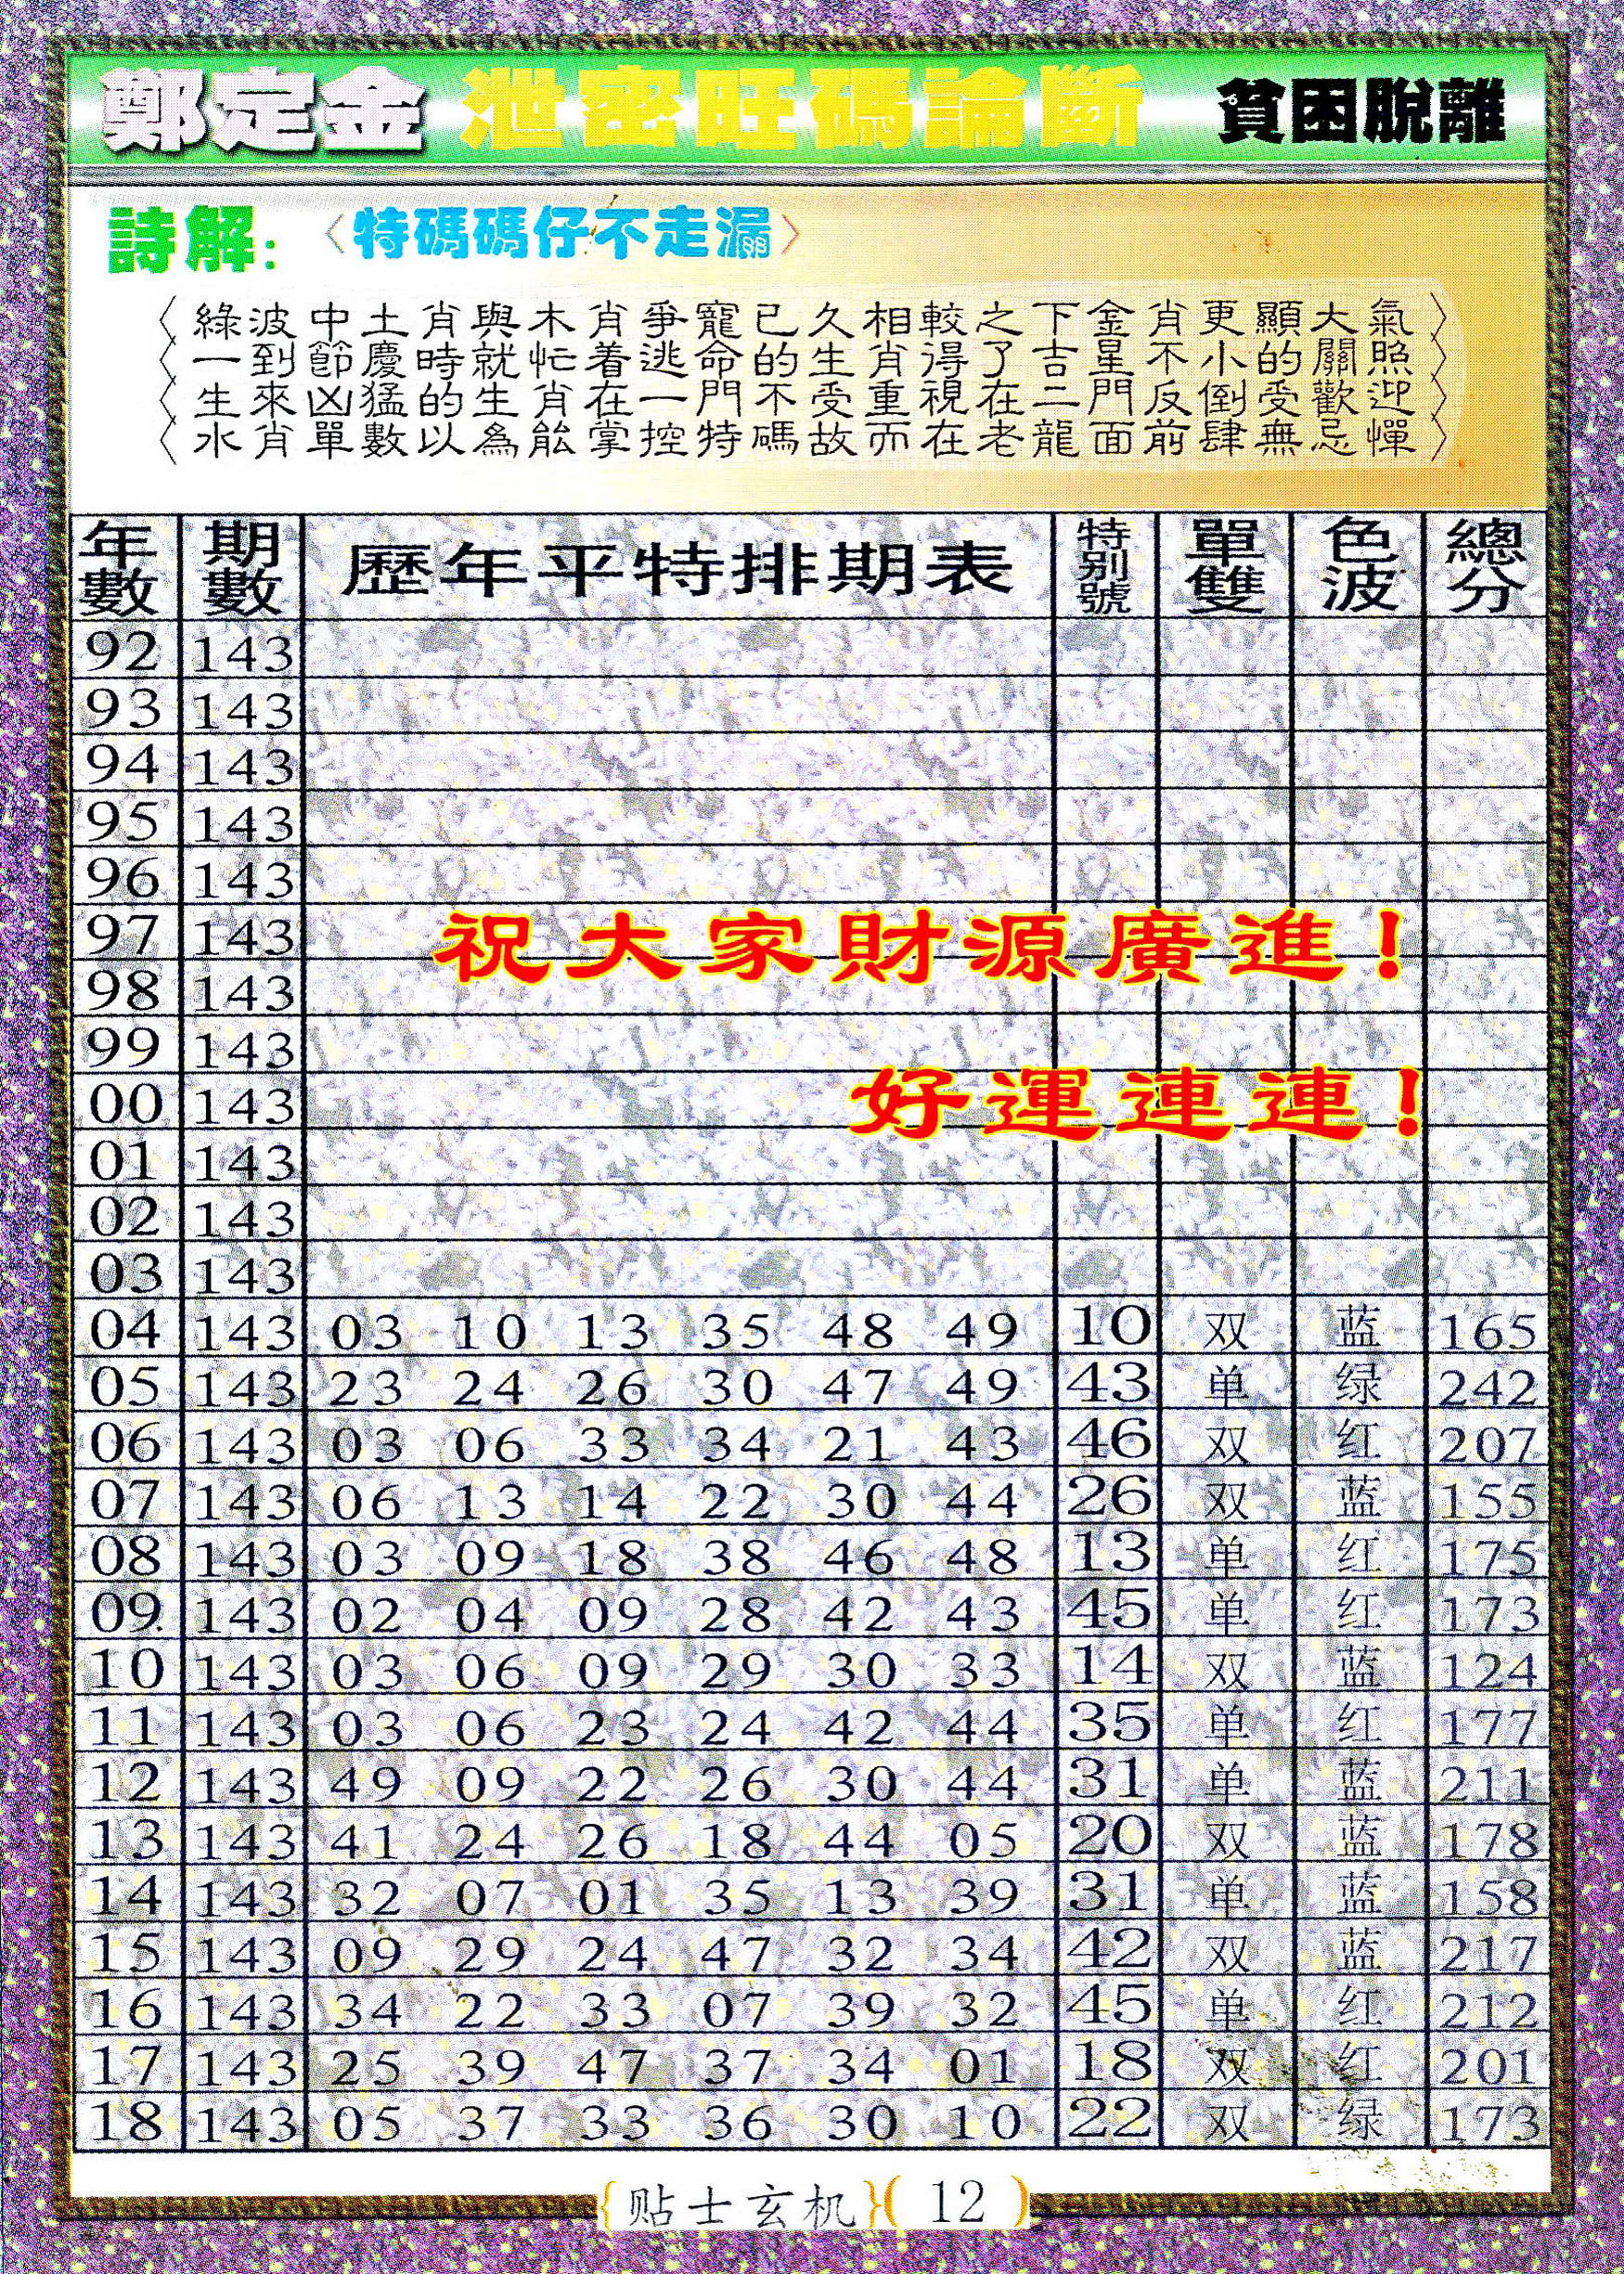 鄭定金 泄密旺碼論斷 貧困脫離
詩解:〈特碼碼仔不走漏〉
〈綠波中土肖與木肖爭寵已久相較之下金肖更顯大氣〉
〈一到節慶時就忙着逃命的生肖得了吉星不小的關照〉
〈生來凶猛的生肖在一門不受重視在二門反倒受歡迎〉
〈水肖單數以為能掌控特碼故而在老龍面前肆無忌憚〉
年數 期數 歷年平特排期表 特别號 單雙 色波 總分
92 143
93 143
94 143
95 143
96 143
97 143
祝大家財源廣進!
98 143
99 143
00 143
好運連連!
01 143
02 143
03 143
04 143 03 10 13 35 48 49 10 双 蓝 165
05 143 23 24 26 30 47 49 43 单 绿 242
06 143 03 06 33 34 21 43 46 双 红 207
07 143 06 13 14 22 30 44 26 双 蓝 155
08 143 03 09 18 38 46 48 13 单 红 175
09 143 02 04 09 28 42 43 45 单 红 173
10 143 03 06 09 29 30 33 14 双 蓝 124
11 143 03 06 23 24 42 44 35 单 红 177
12 143 49 09 22 26 30 44 31 单 蓝 211
13 143 41 24 26 18 44 05 20 双 蓝 178
14 143 32 07 01 35 13 39 31 单 蓝 158
15 143 09 29 24 47 32 34 42 双 蓝 217
16 143 34 22 33 07 39 32 45 单 红 212
17 143 25 39 47 37 34 01 18 双 红 201
18 143 05 37 33 36 30 10 22 双 绿 173
{贴士玄机}(12)